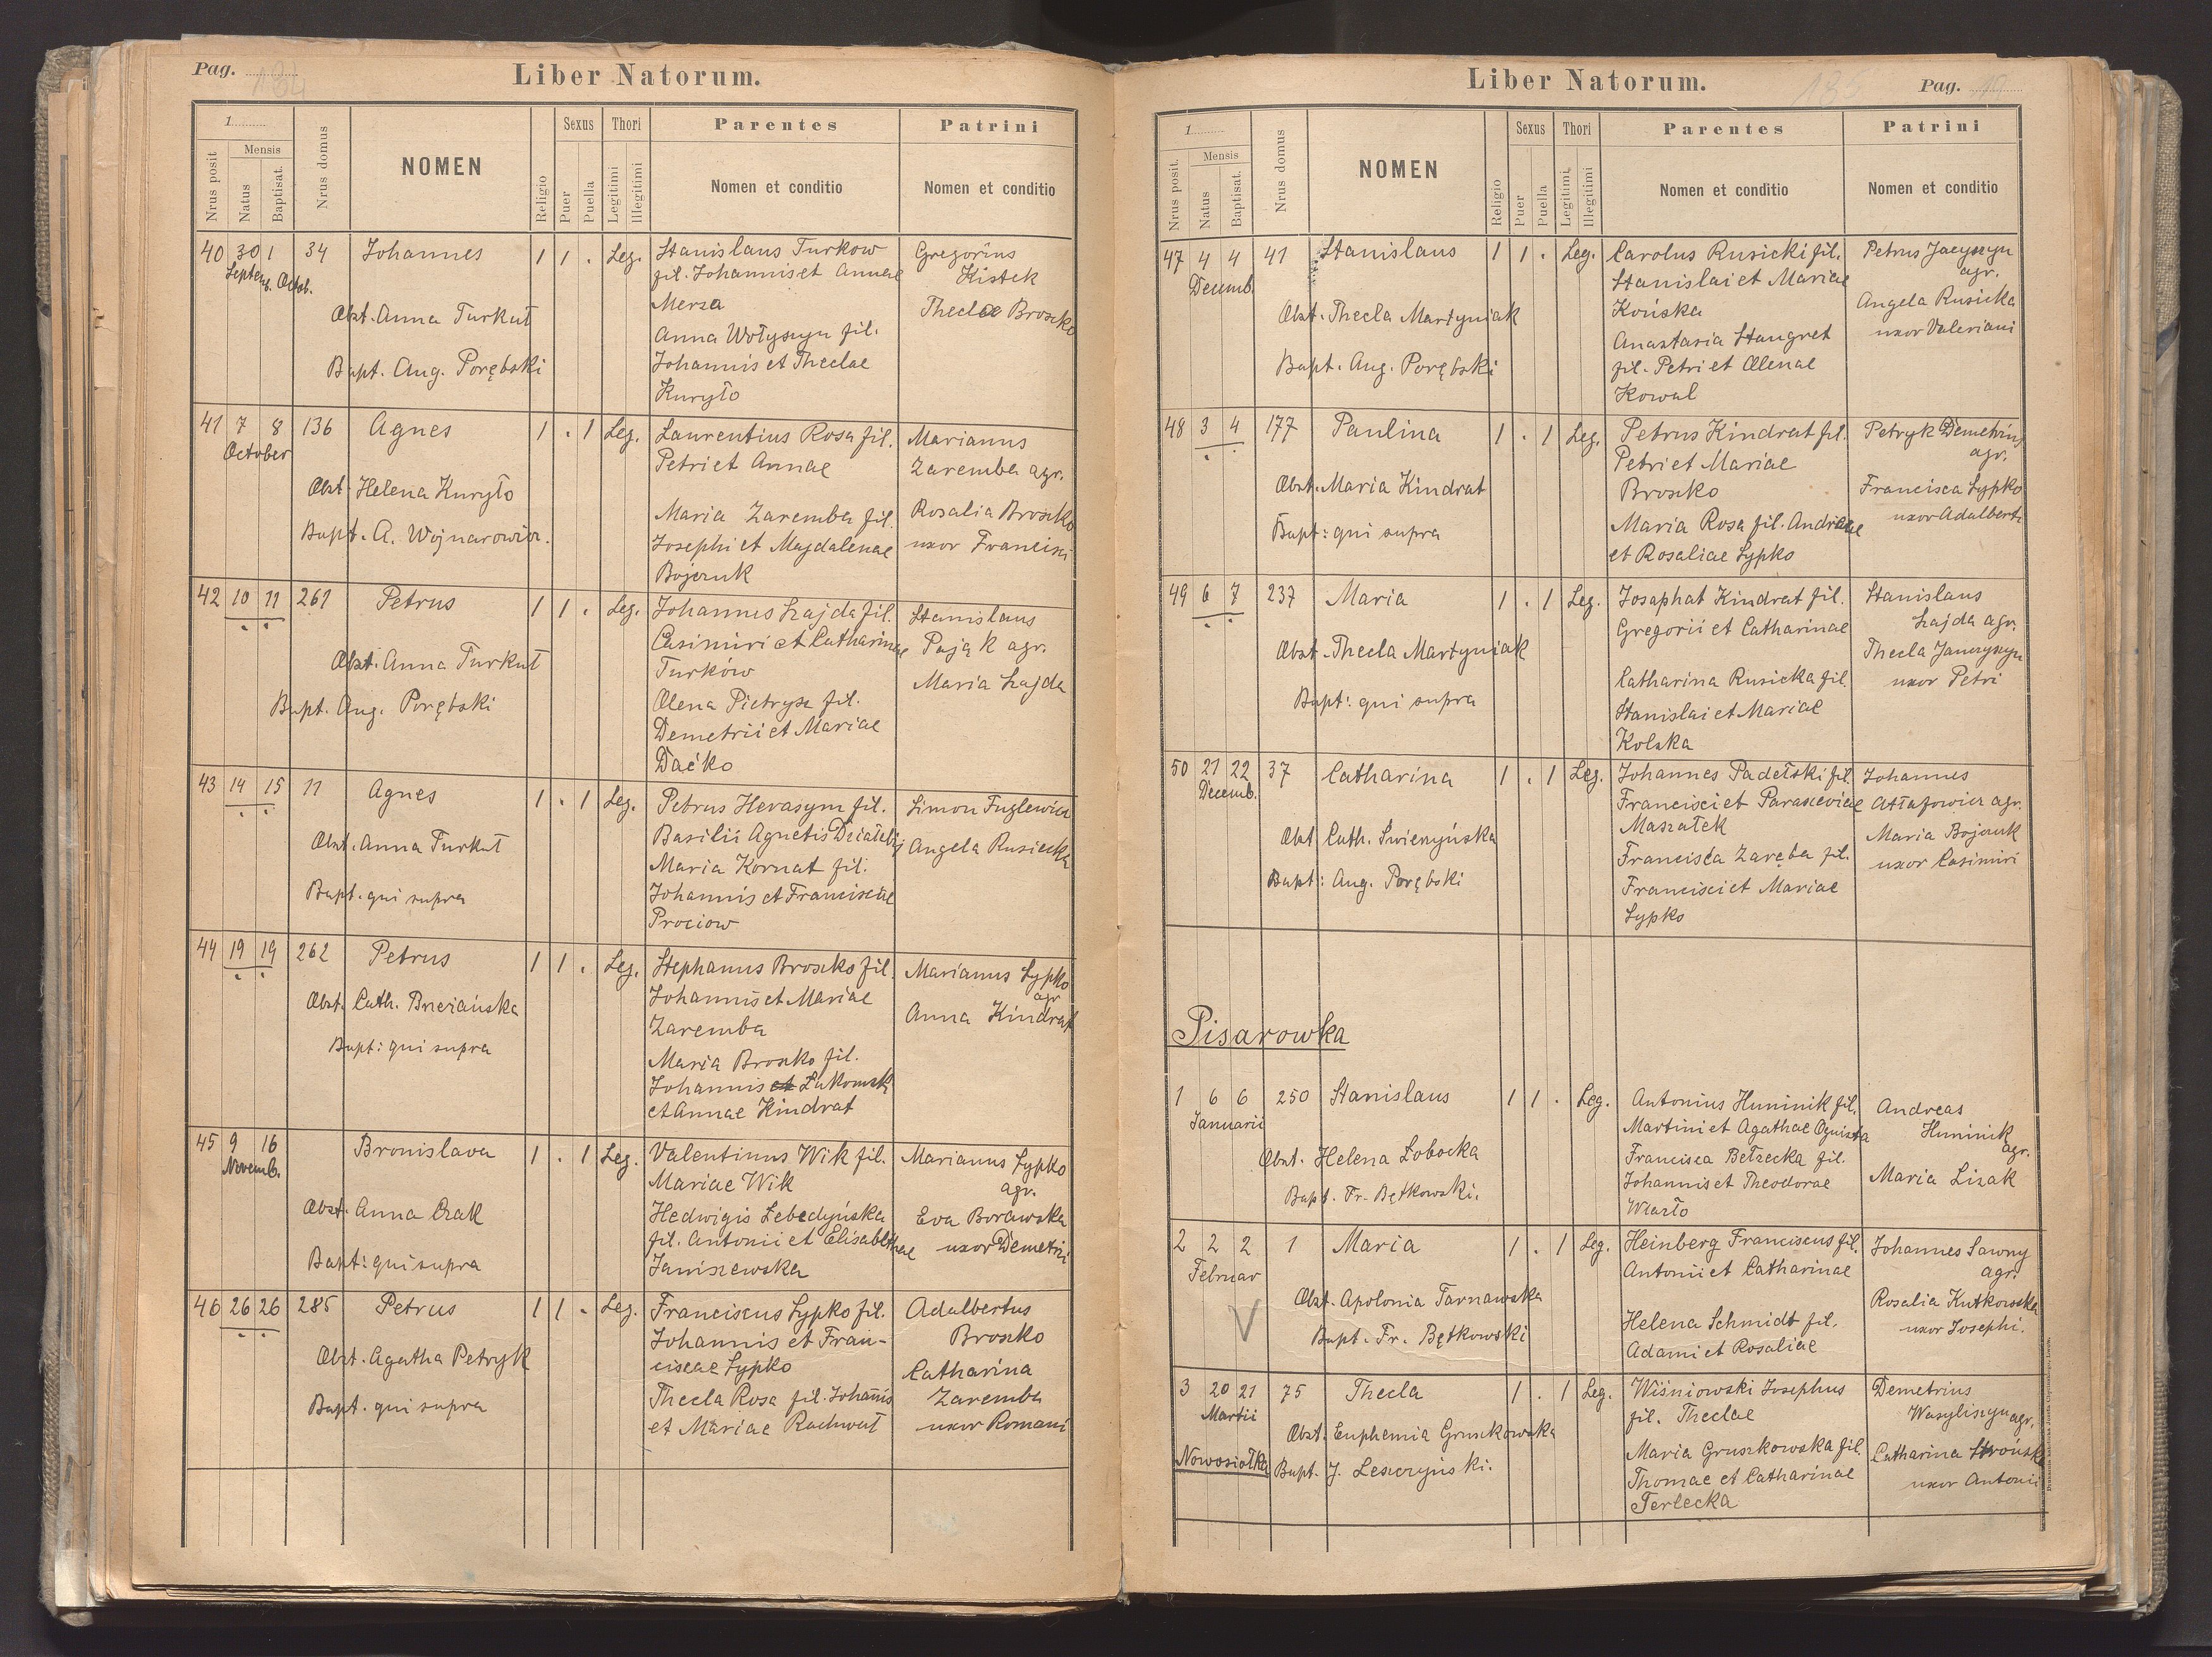 Pag. 184
Liber Natorum.
1
Nrus posit
Mensis
Natus
Baptisat.
Nrus domus
NOMEN
Religio
Sexus
Puer
Puella
Thori
Legitimi
Illegitimi
Parentes
Nomen et conditio
Patrini
Nomen et conditio
40 30 1 34 Johannes 1 1 . Leg.
Septemb. Octob.
Obst. Anna Turkuł
Bapt. Aug. Porębski
Stanislaus Turkow
fil. Johannis et Annae
Mersa
Anna Wołyszyn fil.
Johannis et Theclae
Kuryło
Gregorius
Kistek
Theclae Broszko
41 7 8 136 Agnes 1 . 1 Leg.
October
Obst. Helena Kuryło
Bapt. A. Wojnarowicz.
Laurentius Rosa fil.
Petri et Annae
Maria Zaremba fil.
Josephi et Magdalenae
Bojczuk
Marianus
Zaremba agr.
Rosalia Broszko
uxor Francisci
42 10 11 261 Petrus 1 1 . Leg.
Obst. Anna Turkuł
Bapt. Aug. Porębski
Johannes Łajda fil.
Casimiri et Catharinae
Turków
Olena Pietrysz fil.
Demetrii et Mariae
Daćko
Stanislaus
Pająk agr.
Maria Łajda
43 14 15 11 Agnes 1 . 1 Leg.
Obst. Anna Turkuł
Bapt. qui supra
Petrus Herasym fil.
Basilii Agnetis
Maria Kornat fil.
Johannis et Franciscae
Prociow
Simon Fuglewicz
Angela Rusiecka
44 19 19 262 Petrus 1 1 . Leg.
Obst. Cath. Brzeżańska
Bapt: qui supra
Stephanus Broszko fil.
Johannis et Mariae
Zaremba
Maria Broszko fil.
Johannis et
et Annae Kindrat
Marianus Sypko
agr
Anna Kindrat
45 9 16 Bronislava 1 . 1 Leg.
Novemb.
Obst. Anna Czak
Bapt: qui supra
Valentinus Wik fil.
Mariae Wik
Hedwigis Lebedyńska
fil. Antonii et Elisabethae
Janiszewska
Marianus Sypko
agr.
Eva Borawska
uxor Demetrii
46 26 26 285 Petrus 1 1 . Leg.
Obst. Agatha Petryk
Bapt. qui supra
Franciscus Sypko fil.
Johannis et Fran-
ciscae Sypko
Thecla Rosa fil. Johannis
et Mariae Rachwał
Adalbertus
Broszko
Catharina
Zaremba
uxor Romani
Liber Natorum.
185
Pag. 19
1
Nrus posit.
Mensis
Natus
Baptisat.
Nrus domus
NOMEN
Religio
Sexus
Puer
Puella
Thori
Legitimi.
Illegitimi
Parentes
Nomen et conditio
Patrini
Nomen et conditio
47 4 4 41 Stanislaus 1 1 . Leg.
Decemb.
Obst. Thecla Martyniak
Bapt. Aug. Porębski
Carolus Rusicki fil.
Stanislai et Mariae
Końska
Anastasia Stangret
fil. Petri et Olenae
Kowal
Petrus Jacyszyn
agr.
Angela Rusicka
uxor Valeriani
48 3 4 177 Paulina 1 . 1 Leg.
Obst. Maria Kindrat
Bapt: qui supra
Petrus Kindrat fil.
Petri et Mariae
Broszko
Maria Rosa fil. Andreae
et Rosaliae Sypko
Petryk Demetrius
agr.
Francisca Sypko
uxor Adalberti
49 6 7 237 Maria 1 . 1 Leg.
Obst. Thecla Martyniak
Bapt: qui supra
Josaphat Kindrat fil.
Gregorii et Catharinae
Catharina Rusicka fil.
Stanislai et Mariae
Kolska
Stanislaus
Łajda agr.
Thecla Janczyszyn
uxor Petri
50 21 22 37 Catharina 1 . 1 Leg.
Decemb.
Obst Cath. Swierzyńska
Bapt: Aug. Porębski
Johannes Padełski fil.
Francisci et Parasceviae
Maszałek
Francisca Zaręba fil.
Francisci et Mariae
Sypko
Johannes
Atłafowicz agr.
Maria Bojczuk
uxor Casimiri
Pisarowka
1 6 6 250 Stanislaus 1 1 . Leg.
Januarii
Obst. Helena Łobocka
Bapt. Fr. Bętkowski.
Antonius Huminik fil.
Martini et Agathae Ognista
Francisca Bełzecka fil.
Johannis et Theodorae
Wiarło
Andreas
Huminik
agr.
Maria Lisak
2 2 2 1 Maria 1 . 1 Leg.
Februar
V
Obst. Apolonia Tarnawska
Bapt. Fr. Bętkowski
Heinberg Franciscus fil.
Antonii et Catharinae
Helena Schmidt fil.
Adami et Rosaliae
Johannes Sawny
agr.
Rosalia Kutkowska
uxor Josephi.
3 20 21 75 Thecla 1 . 1 Leg.
Martii
Nowosiołka
Obst. Euphemia Gruszkowska
Bapt. J. Leszczyński.
Wiśniowski Josephus
fil. Theclae
Maria Gruszkowska fil.
Thomae et Catharinae
Terlecka
Demetrius
Wasyliszyn agr.
Catharina Strouska
uxor Antonii